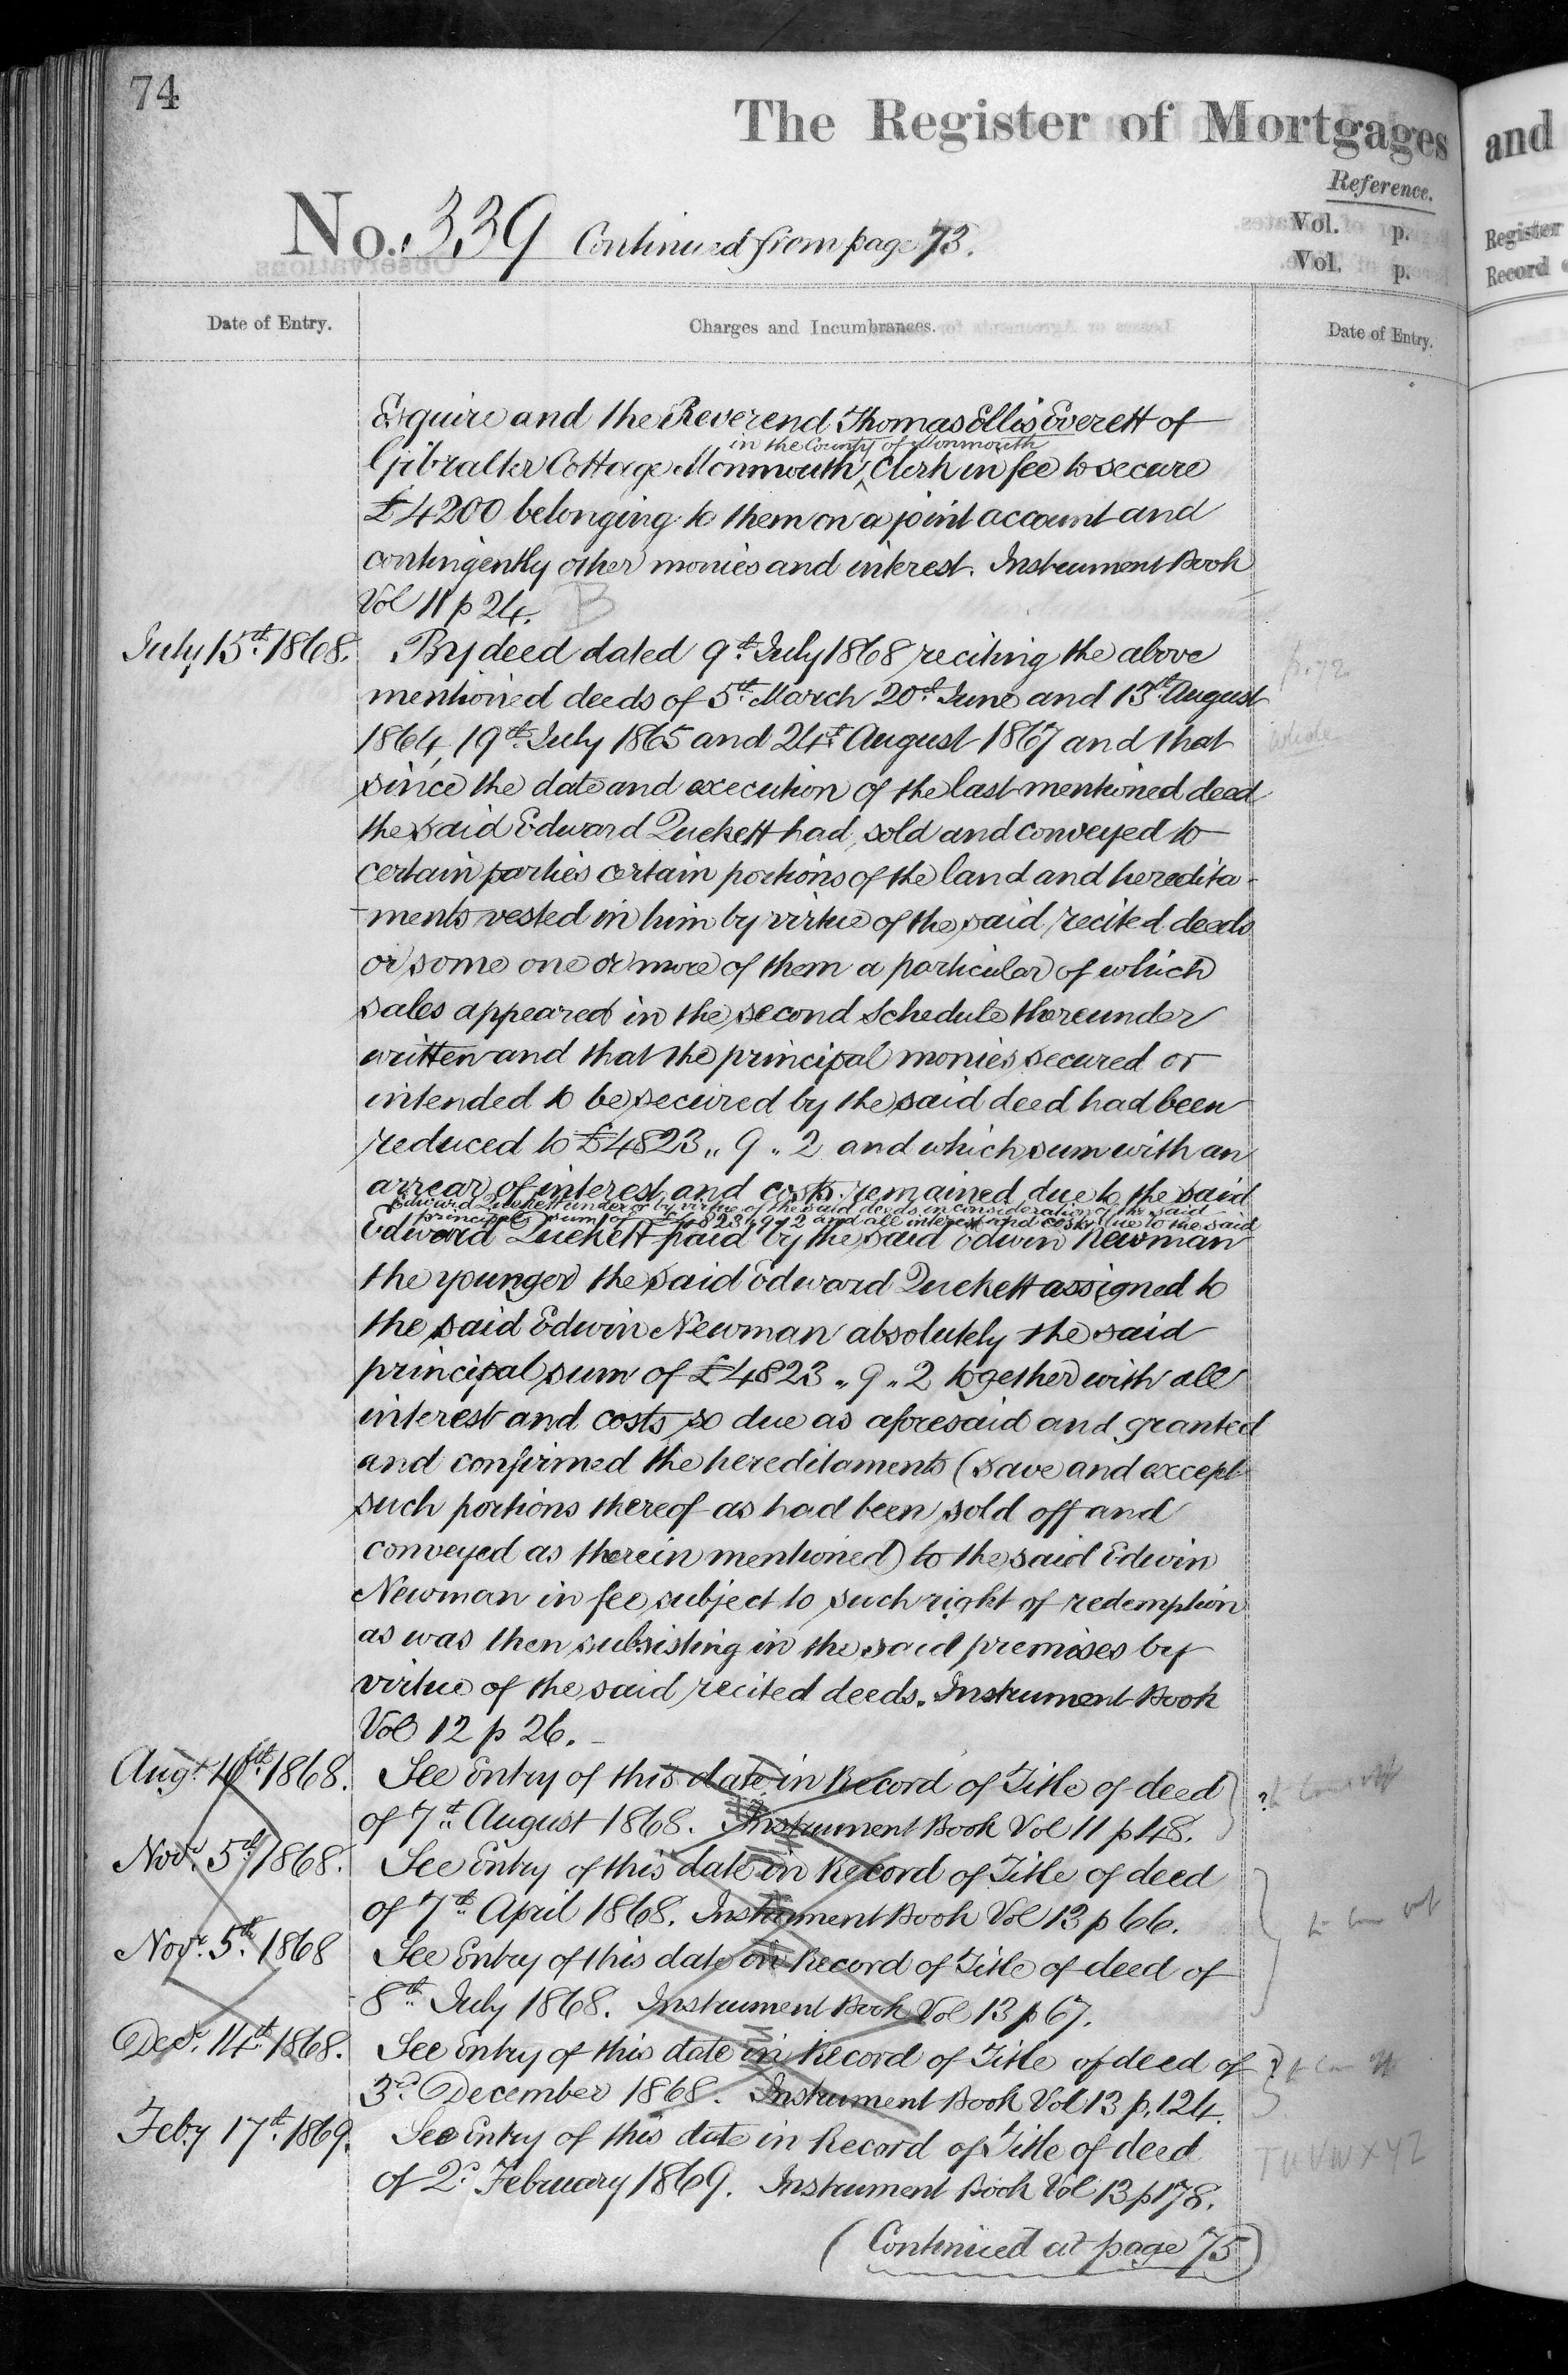 74
The Register of Mortgages
and
Reference.
No. 339 Continued from page 73.
Vol. p.
Vol. p.
Register
Record
Date of Entry.
Charges and Incumbrances.
Date of Entry.
Esquire and the Reverend Thomas Ellis Everett of
in the County of Monmouth
Gibralter Cottage Monmouth ^ Clerk in fee to secure
£4200 belonging to them on a joint account and
contingently other monies and interest. Instrument Book
Vol 11 p 24. B
July 15th 1868.
By deed dated 9th July 1868 reciting the above
p. 72
mentioned deeds of 5th March 20th June and 13th August
1864, 19th July 1865 and 24th August 1867 and that
since the date and execution of the last mentioned deed
the said Edward Quekett had sold and conveyed to
certain parties certain portions of the land and heredita-
-ments vested in him by virtue of the said recited deeds
or some one or more of them a particular of which
sales appeared in the second Schedule thereunder
written and that the principal monies secured or
intended to be secured by the said deed had been
reduced to £4823 " 9 " 2 and which sum with an
arrear of interest and costs remained due to the said
Edward Quekett under or by virtue of the said deeds in consideration of the said
principal sum of £4823 " 9 " 2 and all interest and costs due to the said
Edward Quekett paid by the said Edwin Newman
the younger the said Edward Quekett assigned to
the said Edwin Newman absolutely the said
principal sum of £4823 " 9 " 2 together with all
interest and costs so due as aforesaid and granted
and confirmed the hereditaments (save and except
such portions thereof as had been sold off and
conveyed as therein mentioned) to the said Edwin
Newman in fee subject to such right of redemption
as was then subsisting in the said premises by
virtue of the said recited deeds. Instrument Book
Vol 12 p 26.
Augt 10th 1868.
See Entry of this date in Record of Title of deed
of 7th August 1868. Instrument Book Vol 11 p 48.
Novr. 5th 1868.
See Entry of this date in Record of Title of deed
of 7th April 1868. Instrument Book Vol 13 p 66.
Novr. 5th 1868
See Entry of this date in Record of Title of deed of
8th July 1868. Instrument Book Vol 13 p 67.
Decr. 14th 1868.
See Entry of this date in Record of Title of deed of
3d December 1868. Instrument Book Vol 13 p. 124.
Feby 17th 1869.
See Entry of this date in Record of Title of deed
T U V W X Y Z
of 2d February 1869. Instrument Book Vol 13 p 178.
(Continued at page 75)